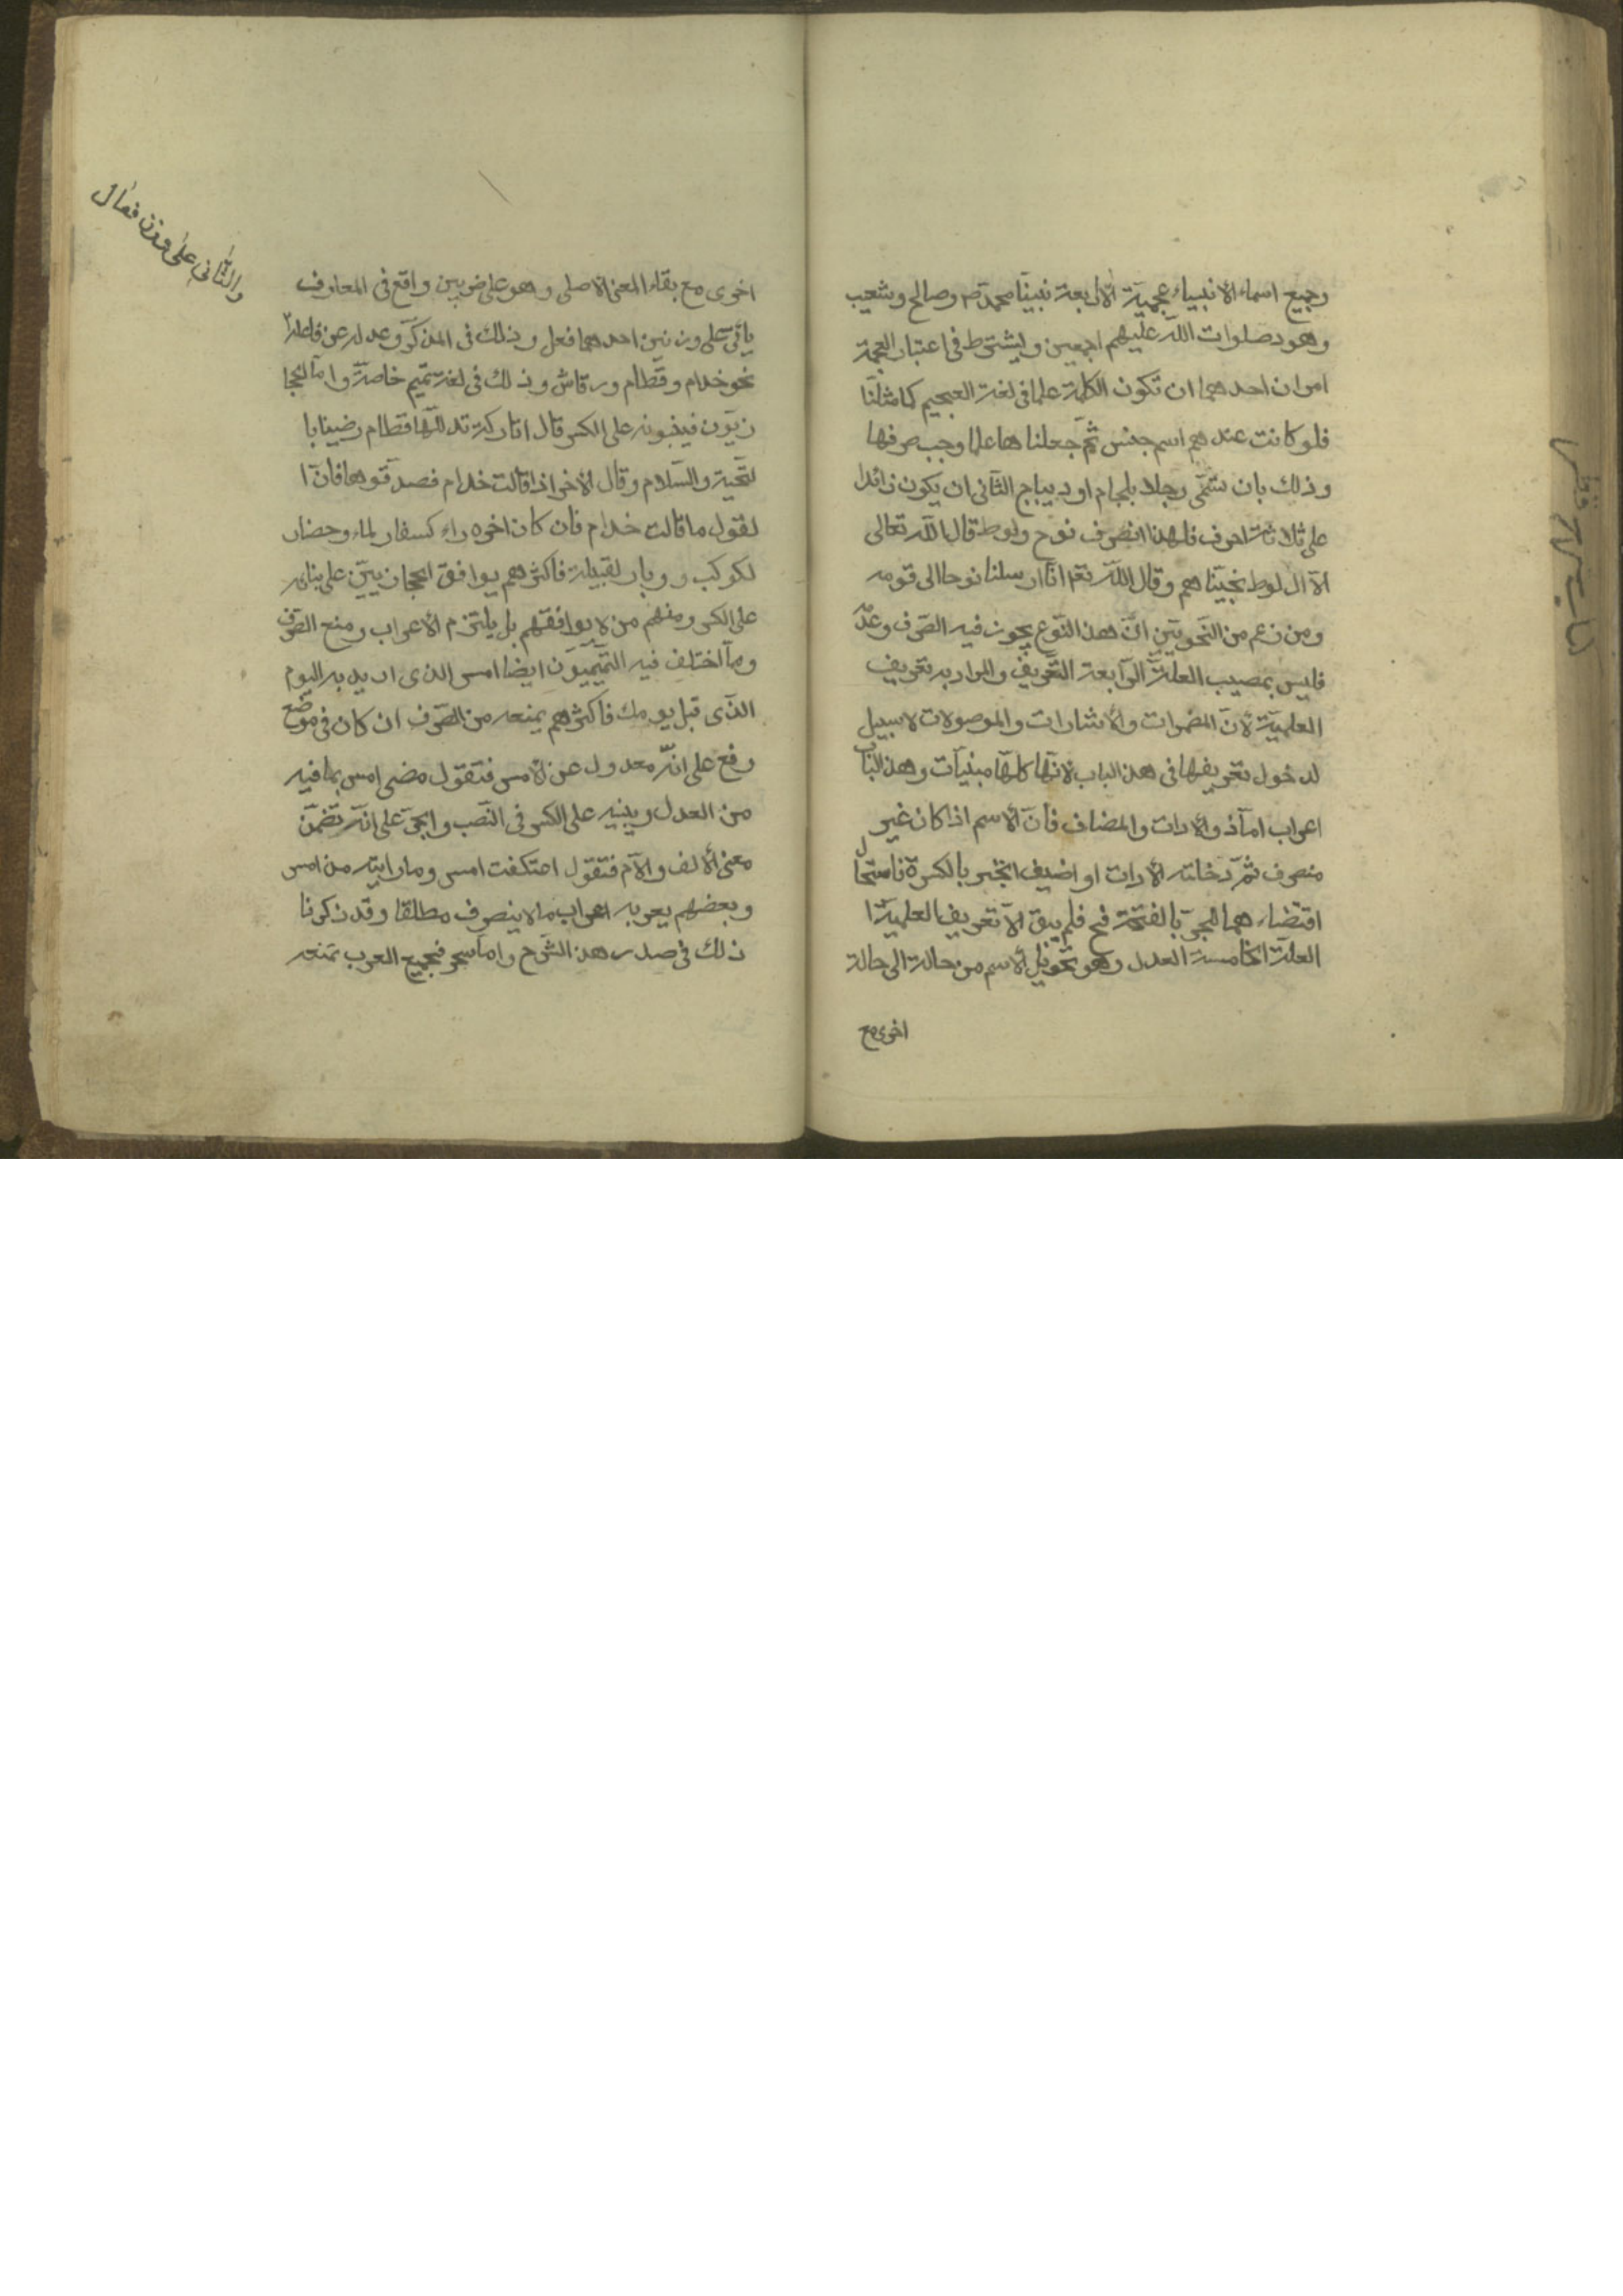 وجميع اسماء الانبياء عجمية الا اربعة نبينا محمد ص وصالح وشعيب
وهود صلوات الله عليهم اجمعين ويشترط فى اعتبار العجمة
امران احدهما ان تكون الكلمة علما فى لغة العجم كما مثلنا
فلو كانت عندهم اسم جنس ثم جعلناها علما وجب صرفها
وذلك بان تسمى رجلا بلجام او ديباج الثانى ان يكون زائدا
على ثلاثة احرف فلهذا انصرف نوح ولوط قال الله تعالى
الا آل لوط نجيناهم وقال الله تع انا ارسلنا نوحا الى قومه
ومن زعم من النحويين ان هذا النوع يجوز فيه الصرف وعدمه
فليس بمصيب العلة الرابعة التعريف والمراد به تعريف
العلمية لان المضمرات والاشارات والموصولات لا سبيل
لدخول تعريفها فى هذا الباب لانها كلها مبنيات وهذا الباب
اعراب اما ذو الادات والمضاف فان الاسم اذا كان غير
منصرف ثم دخلته الادات او اضيف انجر بالكسرة فاستحال
اقتضاءهما الجر بالفتحة فح فلم يبق الا تعريف العلمية
العلة الخامسة العدل وهو تحويل الاسم من حالة الى حالة
اخرى مع
والثانى على وزن فعال
اخرى مع بقاء المعنى الاصلى وهو على ضربين واقع فى المعارف
يأتى على وزنين احدهما فعل وذلك فى المذكر وعدله عن فاعل
نحو خدام وقطام ورقاش وذلك فى لغة تميم خاصة واما الحجا
زيون فيبنونه على الكسر قال اتاركة تدللها قطام رضينا با
لتحية والسلام وقال الاخر اذا قالت خدام فصدقوها فان ا
لقول ما قالت خدام فان كان اخره راء كسفار لماء وحضار
لكوكب ووبار لقبيلة فاكثرهم يوافق الحجازيين على بنائه
على الكسر ومنهم من لا يوافقهم بل يلتزم الاعراب ومنع الصرف
ومما اختلف فيه التميميون ايضا امس الذى اريد به اليوم
الذى قبل يومك فاكثرهم يمنعه من الصرف ان كان فى موضع
رفع على انه معدول عن الامس فتقول مضى امس بما فيه
من العدل ويبنيه على الكسر فى النصب والجر على انه تضمن
معنى الالف واللام فتقول اعتكفت امس وما رايته من امس
وبعضهم يعربه اعراب ما لا ينصرف مطلقا وقد ذكرنا
ذلك فى صدر هذا الشرح واما سحر فجميع العرب تمنعه